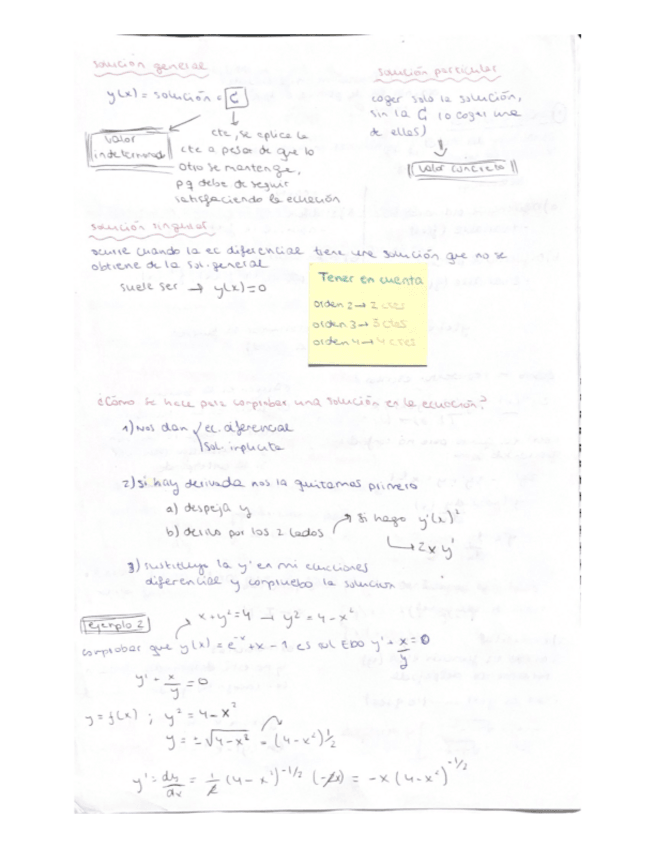 solución general
y(x) = solución + C
valor indeterminado
cte, se aplica la
cte a pesar de que lo
otro se mantenga,
pq debe de seguir
satisfaciendo la ecuación
solución particular
coger solo la solución,
sin la C (o coger una
de ellas)
valor concreto
solución singular
ocurre cuando la ec diferencial tiene una solución que no se
obtiene de la sol. general
suele ser → y(x)=0
Tener en cuenta
orden 2 → 2 ctes
orden 3 → 3 ctes
orden 4 → 4 ctes
¿Cómo se hace para comprobar una solución en la ecuación?
1) Nos dan ec diferencial
sol. implícita
2) Si hay derivada nos la quitamos primero
a) despeja y
b) derivo por los 2 lados
si hago y'(x)²
→ 2x y'
3) sustituyo la y' en mi ecuaciones
diferencial y compruebo la solución
ejemplo 2
x+y²=4 → y²=4-x²
comprobar que y(x) = e⁻ˣ+x-1 es sol EDO y' + x/y = 0
y' + x/y = 0
y = f(x) ; y² = 4-x²
y = ±√4-x² = (4-x²)½
y' = dy/dx = 1/2 (4-x²)^-1/2 (-2x) = -x (4-x²)^-1/2